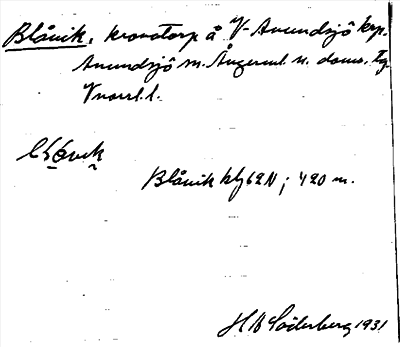 Blåvik, kronotorp å V- Anundsjö krp.
Anundsjö sn. Ångerml. n. doms. tg.
Vnorrl. l.
Blåvik kbl 62N; 420 m.
H B Söderberg 1931